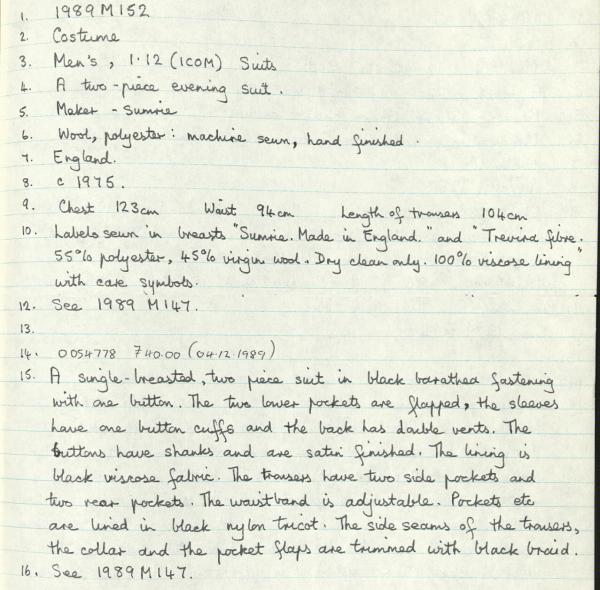 1. 1989 M 152
2. Costume
3. Men's, 1.12 (ICOM) Suits
4. A two-piece evening suit.
5. Maker - Sumrie
6. Wool, polyester: machine sewn, hand finished.
7. England.
8. c 1975.
9. Chest 123cm Waist 94cm Length of trousers 104cm
10. Labels sewn in breasts "Sumrie. Made in England." and "Trevira fibre.
55% polyester, 45% virgin wool. Dry clean only. 100% viscose lining"
with care symbols.
12. See 1989 M147.
13.
14. 0054778 740.00 (04.12.1989)
15. A single-breasted, two piece suit in black barathea fastening
with one button. The two lower pockets are flapped, the sleeves
have one button cuffs and the back has double vents. The
buttons have shanks and are satin finished. The lining is
black viscose fabric. The trousers have two side pockets and
two rear pockets. The waistband is adjustable. Pockets etc
are lined in black nylon tricot. The side seams of the trousers,
the collar and the pocket flaps are trimmed with black braid.
16. See 1989 M147.